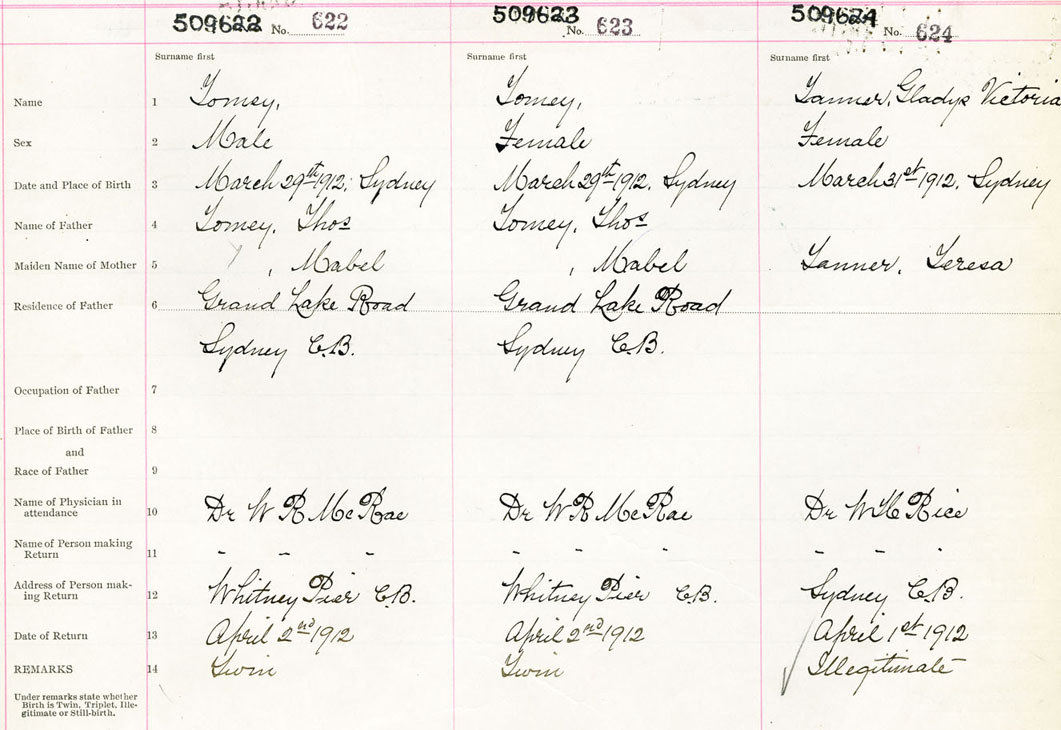 509622 No. 622
509623 No. 623
509624 No. 624
Surname first
Surname first
Surname first
Name 1 Tomey, Tomey, Tanner, Gladys Victoria
Sex 2 Male Female Female
Date and Place of Birth 3 March 29th 1912, Sydney March 29th 1912, Sydney March 31st 1912, Sydney
Name of Father 4 Tomey, Thos Tomey, Thos
Maiden Name of Mother 5 , Mabel , Mabel Tanner, Teresa
Residence of Father 6 Grand Lake Road Grand Lake Road
Sydney C.B. Sydney C.B.
Occupation of Father 7
Place of Birth of Father 8
and
Race of Father 9
Name of Physician in
attendance 10 Dr W R McRae Dr W R McRae Dr Rice
Name of Person making
Return 11 - - - - - - - - -
Address of Person mak-
ing Return 12 Whitney Pier C.B. Whitney Pier C.B. Sydney C.B.
Date of Return 13 April 2nd 1912 April 2nd 1912 April 1st 1912
REMARKS 14 Twin Twin Illegitimate
Under remarks state whether
Birth is Twin, Triplet, Ille-
gitimate or Still-birth.